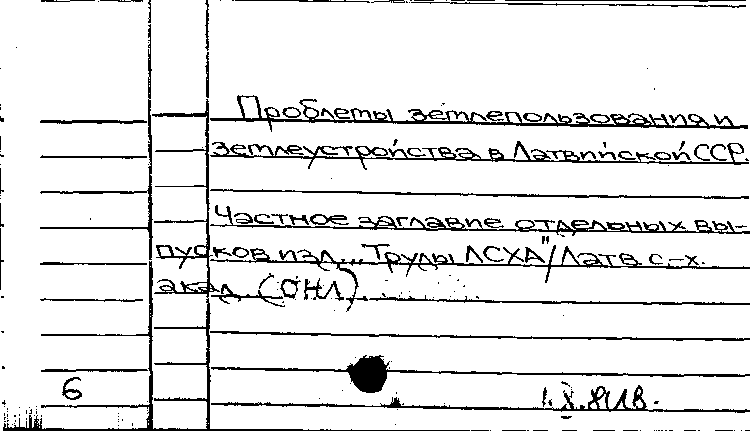 Проблемы землепользования и
землеустройства в Латвийской ССР.
Частное заглавие отдельных вы-
пусков изд. „Труды ЛСХА"/Латв. с.-х.
акад. (ОНЛ)
6